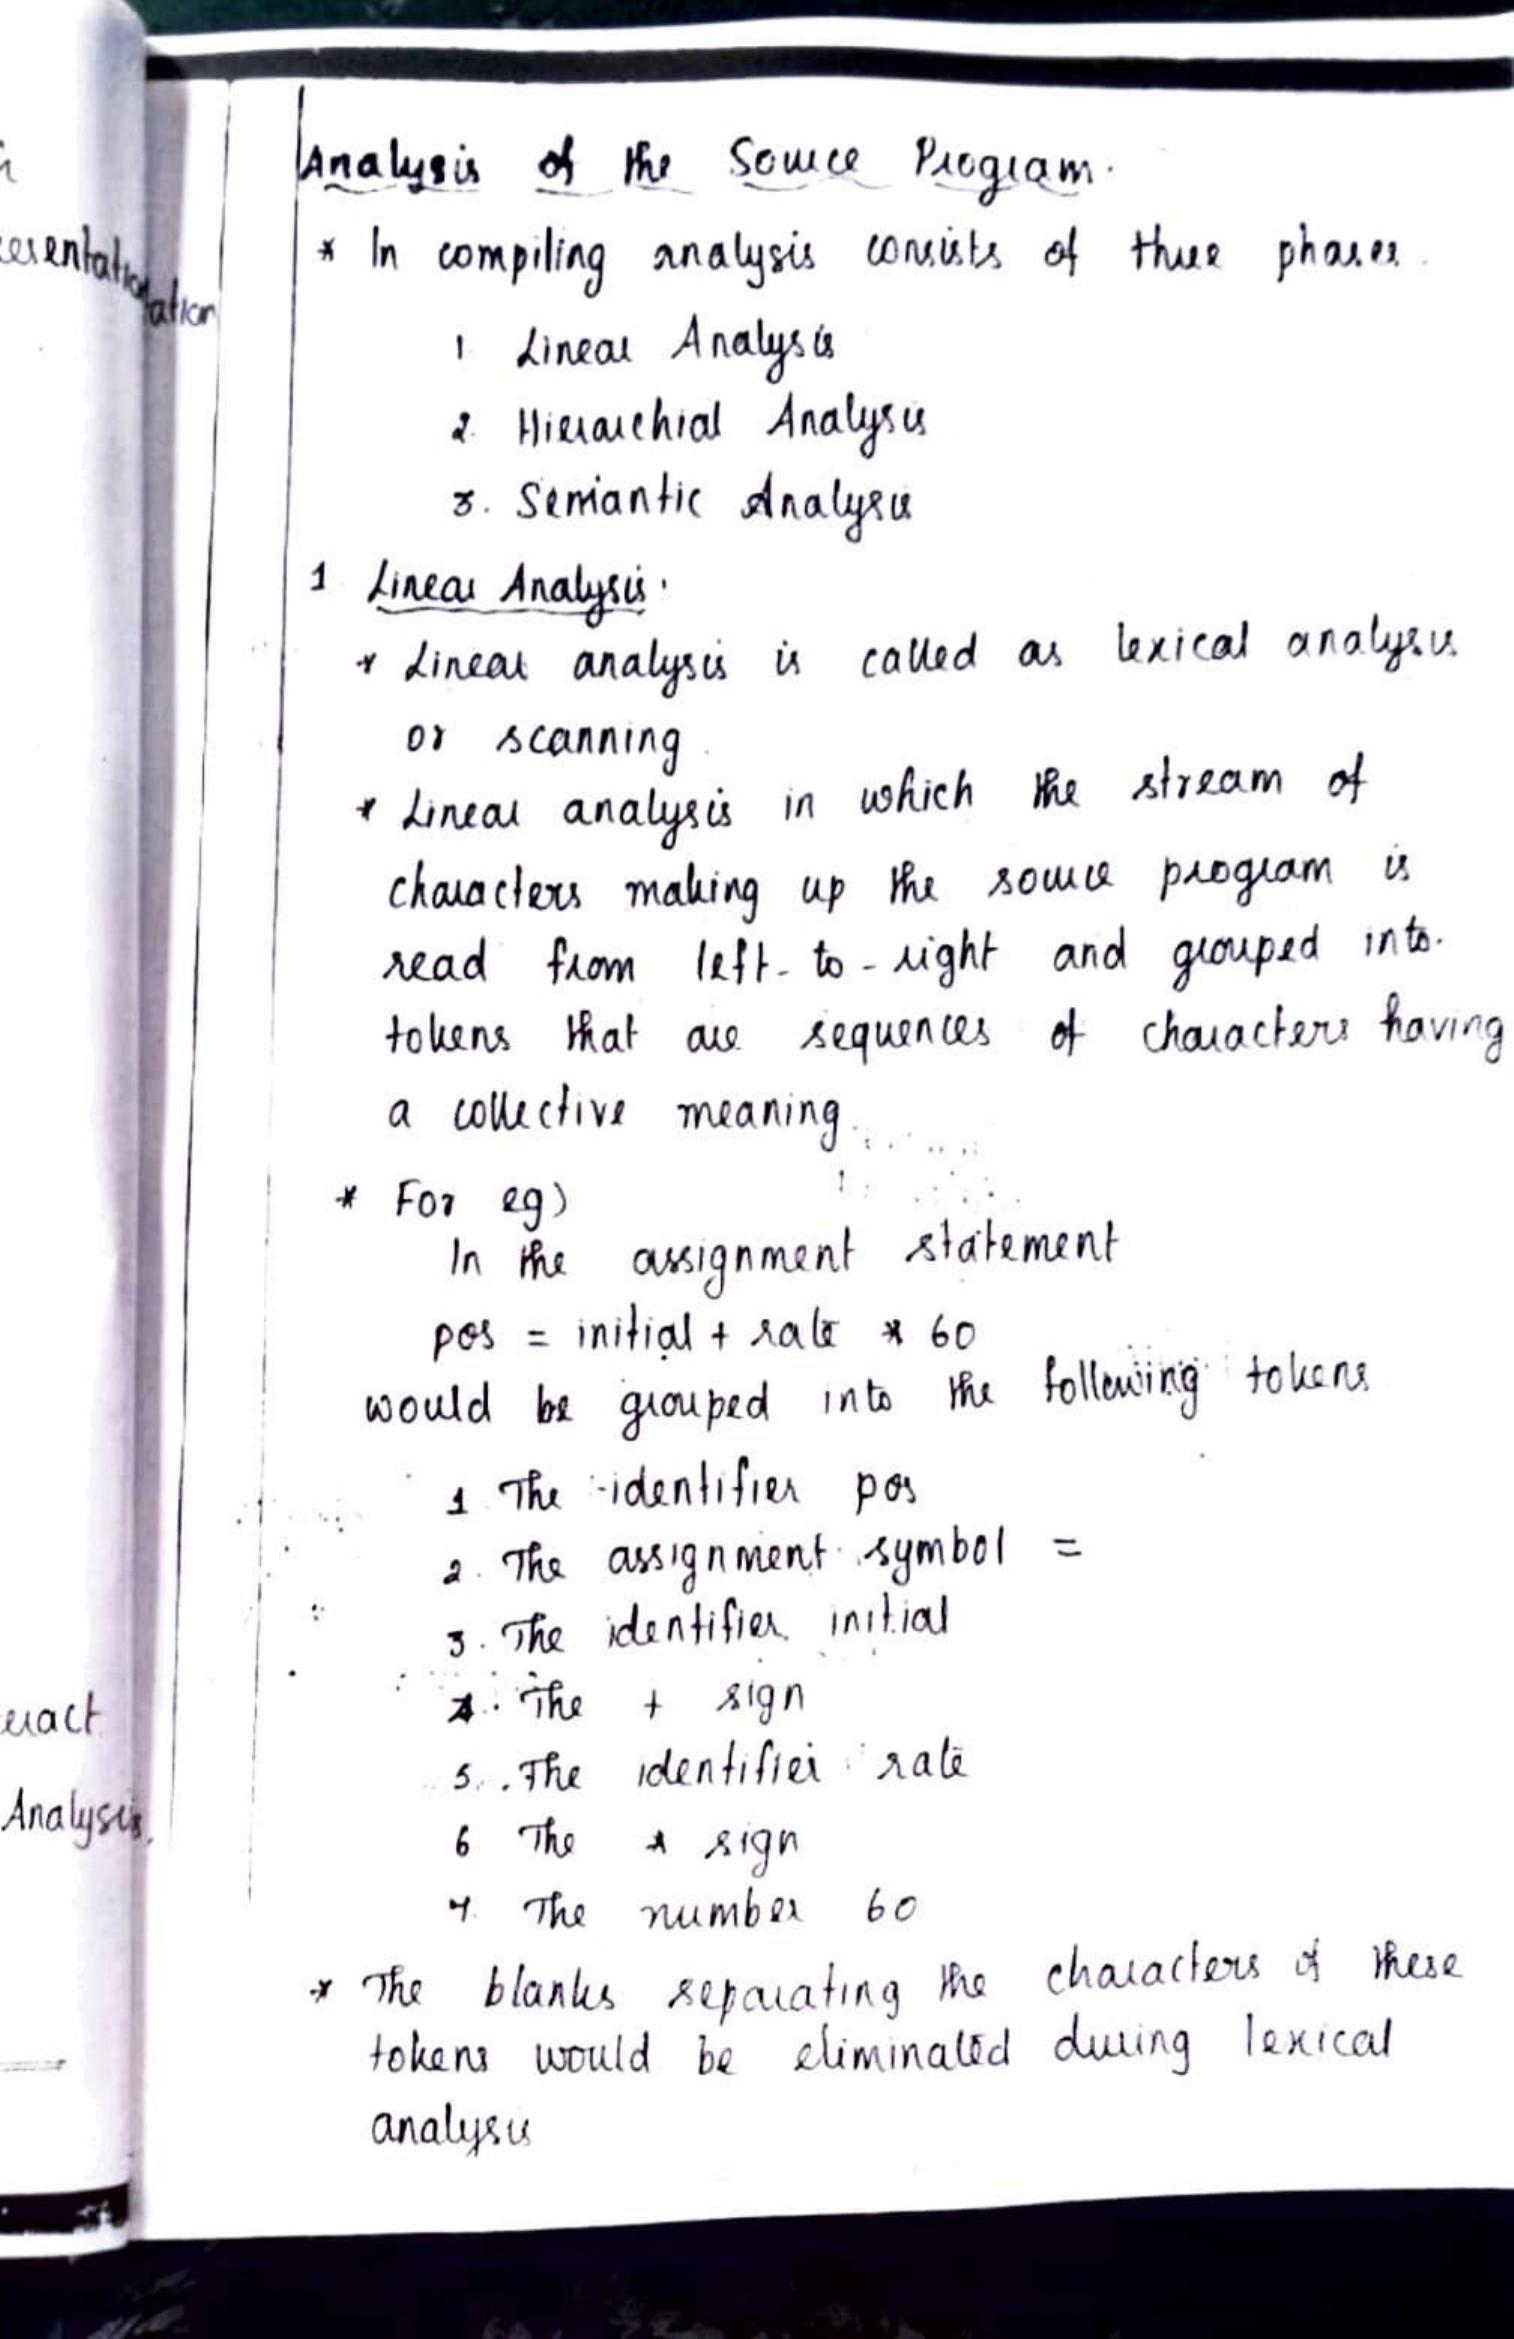 Analysis of the Source Program.
* In compiling analysis consists of three phases.
1 Linear Analysis
2. Hierarchial Analysis
3. Semantic Analysis
1 Linear Analysis.
* Linear analysis is called as lexical analysis
or scanning.
* Linear analysis in which the stream of
characters making up the source program is
read from left-to-right and grouped into.
tokens that are sequences of characters having
a collective meaning.
* For eg)
In the assignment statement
pos = initial + rate * 60
would be grouped into the following tokens
1. The identifier pos
2. The assignment symbol =
3. The identifier initial
4. The + sign
5. The identifier rate
6 The * sign
7. The number 60
* The blanks separating the characters of these
tokens would be eliminated during lexical
analysis
Analysis.